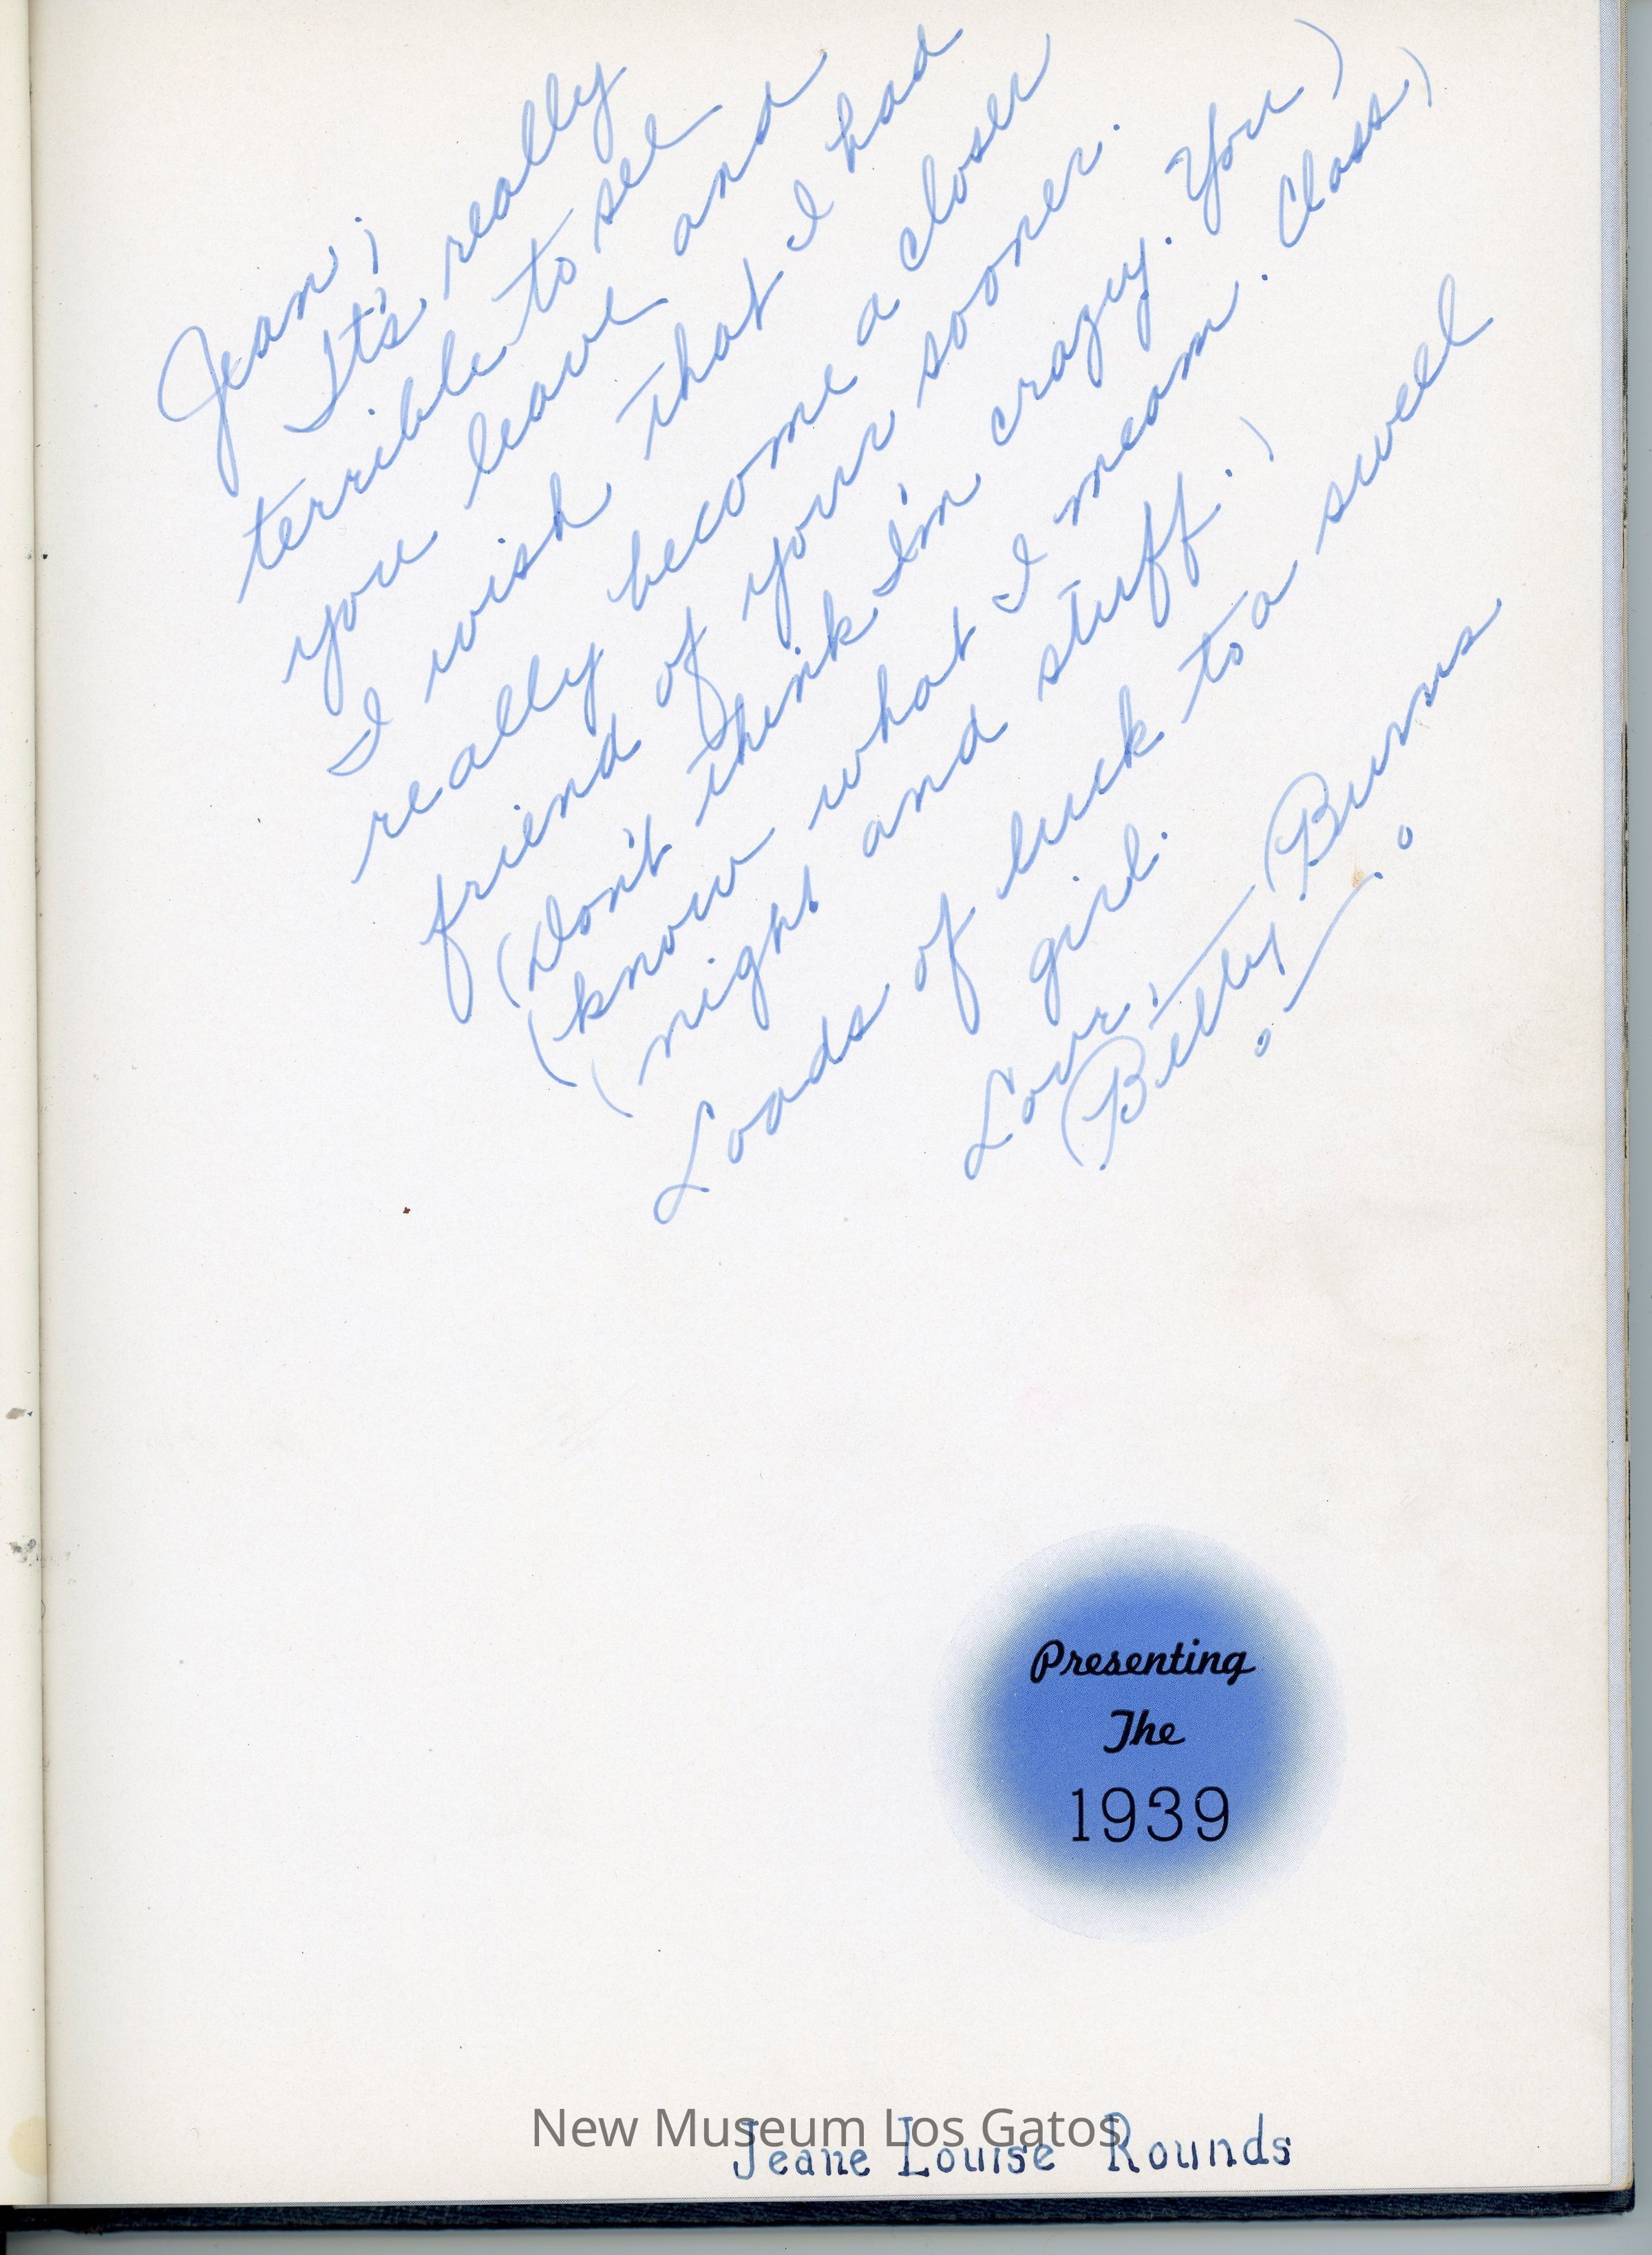 Jean;
It's really
terrible to see
you leave and
I wish that I had
really become a closer
friend of your sooner.
(Don't think I'm crazy. You)
(know what I mean. Class)
(night and stuff.)
Loads of luck to a swell
girl.
Love,
Betty Burns
Presenting
The
1939
New Museum Los Gatos
Jeane Louise Rounds